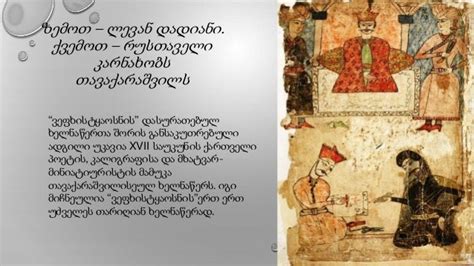 ზემოთ – ლევან დადიანი.
ქვემოთ – რუსთაველი
კარნახობს
თავაქარაშვილს
“ვეფხისტყაოსნის” დასურათებულ
ხელნაწერთა შორის განსაკუთრებული
ადგილი უკავია XVII საუკუნის ქართველი
პოეტის, კალიგრაფისა და მხატვარ-
მინიატიურისტის მამუკა
თავაქარაშვილისეულ ხელნაწერს. იგი
მიჩნეულია “ვეფხისტყაოსნის”ერთ ერთ
უძველეს თარიღიან ხელნაწერად.